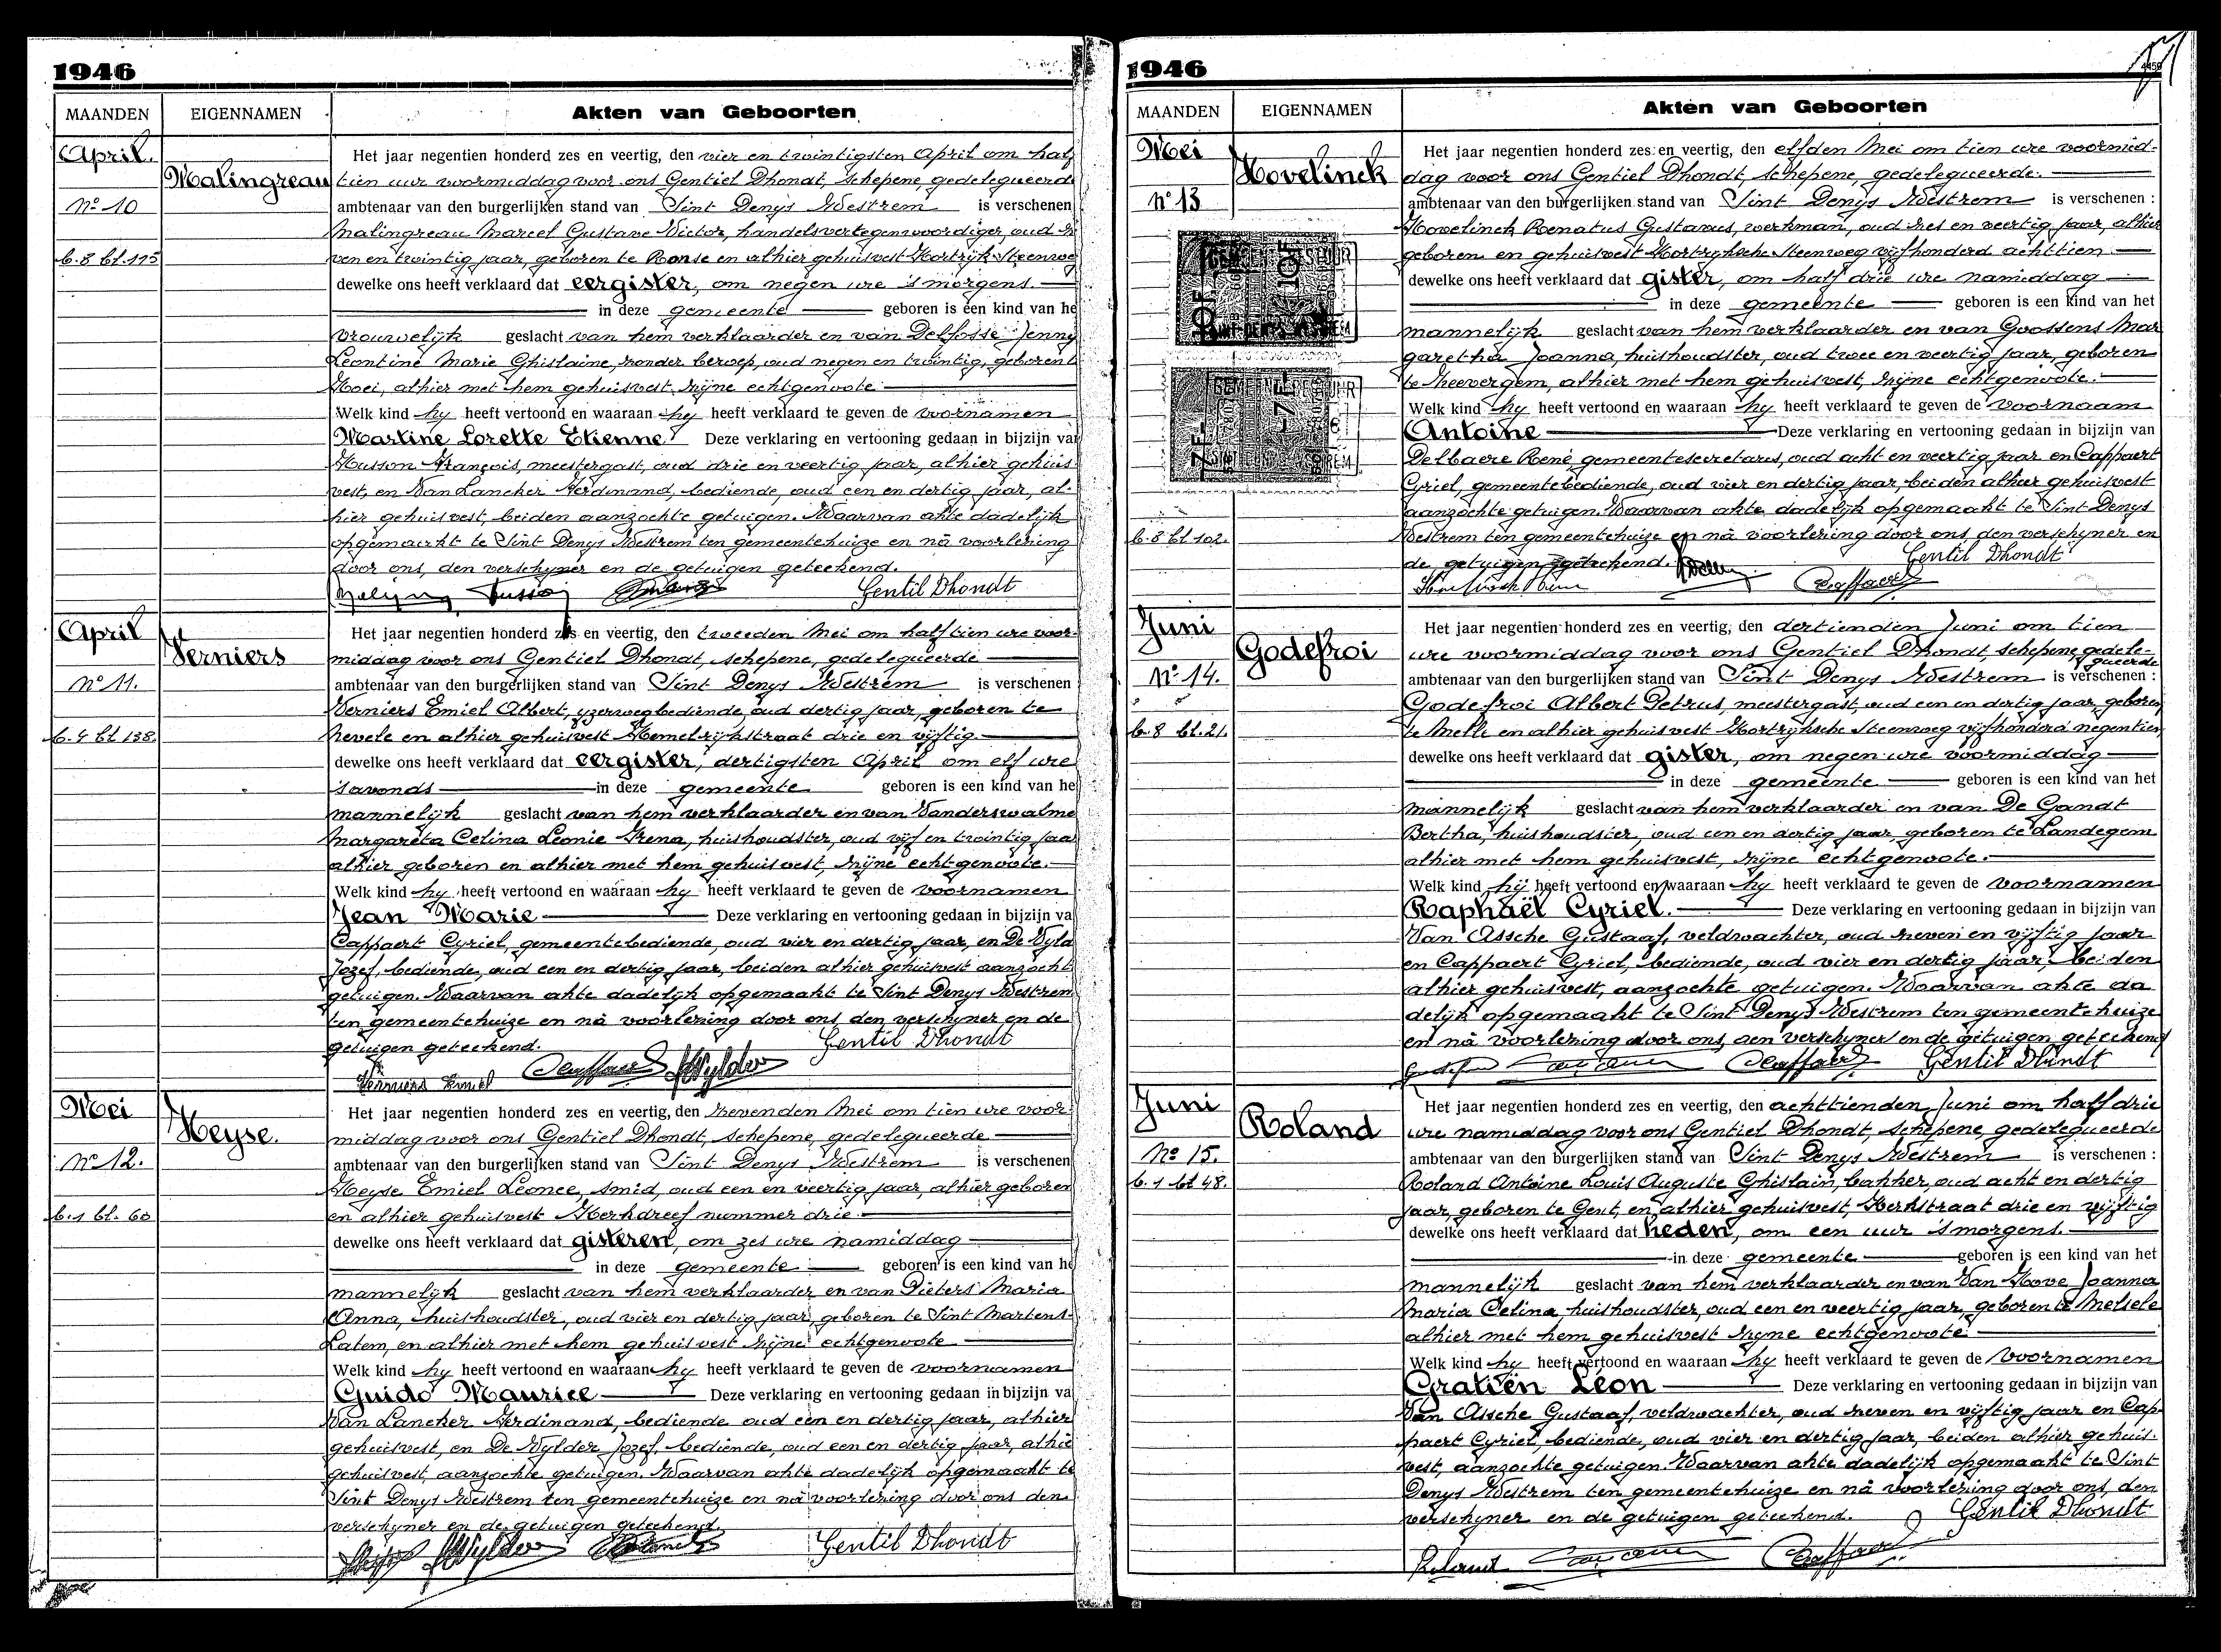 1946
MAANDEN EIGENNAMEN Akten van Geboorten
April.
Malingreau
Nº 10
b.8 bl.175
Het jaar negentien honderd zes en veertig, den vier en twintigsten April om half
tien uur voormiddag voor ons Gentiel Dhondt, schepene, gedelegueerde
ambtenaar van den burgerlijken stand van Sint Denys Westrem is verschenen
Malingreau Marcel Gustave Victor, handelsvertegenwoordiger, oud ze
ven en twintig jaar, geboren te Ronse en alhier gehuisvest Kortrijk Steenweg
dewelke ons heeft verklaard dat eergister, om negen ure 's morgens.
in deze gemeente geboren is een kind van he
vrouwelijk geslacht van hem verklaarder en van Delfosse Jenny
Léontine Marie Ghislaine, zonder beroep, oud negen en twintig, geboren t
Hoei, alhier met hem gehuisvest, zijne echtgenoote
Welk kind hy heeft vertoond en waaraan hy heeft verklaard te geven de voornamen
Martine Lorette Etienne Deze verklaring en vertooning gedaan in bijzijn va
Husson François, meestergast, oud drie en veertig jaar, alhier gehuis-
vest, en Van Lancker Ferdinand, bediende, oud een en dertig jaar, al-
hier gehuisvest, beiden aanzochte getuigen. Waarvan akte dadelijk
opgemaakt te Sint Denys Westrem ten gemeentehuize en nà voorlezing
door ons, den verschyner en de getuigen geteekend.
Gentil Dhondt
April
Verniers
Nº 11.
b.4 bl 138
Het jaar negentien honderd zes en veertig, den tweeden Mei om half tien ure voor-
middag voor ons Gentiel Dhondt, schepene, gedelegueerde
ambtenaar van den burgerlijken stand van Sint Denys Westrem is verschenen
Verniers Emiel Albert, yzerwegbediende, oud dertig jaar, geboren te
Nevele en alhier gehuisvest Hemelrijkstraat drie en vijftig
dewelke ons heeft verklaard dat eergister, dertigsten April om elf ure
's avonds in deze gemeente geboren is een kind van he
mannelijk geslacht van hem verklaarder en van Vanderswalme
Margareta Celina Leonie Irena, huishoudster, oud vijf en twintig jaar
alhier geboren en alhier met hem gehuisvest, zijne echtgenoote.
Welk kind hy heeft vertoond en waaraan hy heeft verklaard te geven de voornamen
Jean Marie Deze verklaring en vertooning gedaan in bijzijn va
Cappaert Cyriel, gemeentebediende, oud vier en dertig jaar, en De Wyld
Jozef, bediende, oud een en dertig jaar, beiden alhier gehuisvest aanzocht
getuigen. Waarvan akte dadelijk opgemaakt te Sint Denys Westrem
ten gemeentehuize en nà voorlezing door ons, den verschyner en de
getuigen geteekend. Gentil Dhondt
Verniers Emiel
Mei
Heyse.
Nº 12.
b.1 bl. 60
Het jaar negentien honderd zes en veertig, den zevenden Mei om tien ure voor-
middag voor ons Gentiel Dhondt, schepene, gedelegueerde
ambtenaar van den burgerlijken stand van Sint Denys Westrem is verschenen
Heyse Emiel Leonce, smid, oud een en veertig jaar, alhier geboren
en alhier gehuisvest Kerkdreef nummer drie
dewelke ons heeft verklaard dat gisteren, om zes ure namiddag
in deze gemeente geboren is een kind van he
mannelijk geslacht van hem verklaarder en van Pieters Maria
Anna, huishoudster, oud vier en dertig jaar, geboren te Sint Martens-
Latem, en alhier met hem gehuisvest zijne echtgenoote
Welk kind hy heeft vertoond en waaraan hy heeft verklaard te geven de voornamen
Guido Maurice Deze verklaring en vertooning gedaan in bijzijn va
Van Lancker Ferdinand, bediende oud een en dertig jaar, alhier
gehuisvest, en De Wylder Jozef, bediende, oud een en dertig jaar, alhie
gehuisvest, aanzochte getuigen. Waarvan akte dadelijk opgemaakt te
Sint Denys Westrem ten gemeentehuize en nà voorlezing door ons den
verschyner en de getuigen geteekend.
Gentil Dhondt
1946
MAANDEN EIGENNAMEN Akten van Geboorten
Mei
Hovelinck
Nº 13
b.8 bl 102.
Het jaar negentien honderd zes en veertig, den elfden Mei om tien ure voormid-
dag voor ons Gentiel Dhondt, schepene, gedelegueerde.
ambtenaar van den burgerlijken stand van Sint Denys Westrem is verschenen :
Hovelinck Renatus Gustavus, werkman, oud zes en veertig jaar, alhier
geboren en gehuisvest Kortrijksche Steenweg vijfhonderd achttien
dewelke ons heeft verklaard dat gister, om half drie ure namiddag
in deze gemeente geboren is een kind van het
mannelijk geslacht van hem verklaarder en van Goossens Mar
garetha Joanna, huishoudster, oud twee en veertig jaar, geboren
te Heevergem, alhier met hem gehuisvest, zijne echtgenoote.
Welk kind hy heeft vertoond en waaraan hy heeft verklaard te geven de voornaam
Antoine Deze verklaring en vertooning gedaan in bijzijn van
Delbaere René gemeentesecretaris, oud acht en veertig jaar en Cappaert
Cyriel, gemeentebediende, oud vier en dertig jaar, beiden alhier gehuisvest
aanzochte getuigen. Waarvan akte dadelijk opgemaakt te Sint Denys
Westrem ten gemeentehuize en nà voorlezing door ons, den verschyner en
de getuigen geteekend. Gentil Dhondt
Juni
Godefroi
Nº 14.
b.8 bl.21.
Het jaar negentien honderd zes en veertig, den dertienden Juni om tien
ure voormiddag voor ons Gentiel Dhondt, schepene, gedele-
gueerde
ambtenaar van den burgerlijken stand van Sint Denys Westrem is verschenen :
Godefroi Albert Petrus, meestergast, oud een en dertig jaar, geboren
te Melle en alhier gehuisvest Kortrijksche Steenweg vijfhonderd negentien
dewelke ons heeft verklaard dat gister, om negen ure voormiddag
in deze gemeente geboren is een kind van het
mannelijk geslacht van hem verklaarder en van De Gandt
Bertha, huishoudster, oud een en dertig jaar, geboren te Landegem
alhier met hem gehuisvest, zijne echtgenoote.
Welk kind hij heeft vertoond en waaraan hy heeft verklaard te geven de voornamen
Raphaël Cyriel. Deze verklaring en vertooning gedaan in bijzijn van
Van Assche Gustaaf, veldwachter, oud zeven en vijftig jaar
en Cappaert Cyriel, bediende, oud vier en dertig jaar, beiden
alhier gehuisvest, aanzochte getuigen. Waarvan akte da
delijk opgemaakt te Sint Denys Westrem ten gemeentehuize
en nà voorlezing door ons, den verschyner en de getuigen geteekend
Gentil Dhondt
Juni
Roland
Nº 15.
b.1 bl 48.
Het jaar negentien honderd zes en veertig, den achttienden Juni om half drie
ure namiddag voor ons Gentiel Dhondt, schepene, gedelegueerde
ambtenaar van den burgerlijken stand van Sint Denys Westrem is verschenen :
Roland Antoine Louis Auguste Ghislain, bakker, oud acht en dertig
jaar, geboren te Gent, en alhier gehuisvest, Kerkstraat drie en vijftig
dewelke ons heeft verklaard dat heden, om een uur 's morgens.
in deze gemeente geboren is een kind van het
mannelijk geslacht van hem verklaarder en van Van Hove Joanna
Maria Celina, huishoudster, oud een en veertig jaar, geboren te Melsele
alhier met hem gehuisvest zijne echtgenoote.
Welk kind hy heeft vertoond en waaraan hy heeft verklaard te geven de voornamen
Gratiën Léon Deze verklaring en vertooning gedaan in bijzijn van
Van Assche Gustaaf, veldwachter, oud zeven en vijftig jaar en Cap-
paert Cyriel, bediende, oud vier en dertig jaar, beiden alhier gehuis-
vest, aanzochte getuigen. Waarvan akte dadelijk opgemaakt te Sint
Denys Westrem ten gemeentehuize en nà voorlezing door ons, den
verschyner en de getuigen geteekend. Gentil Dhondt
Roland